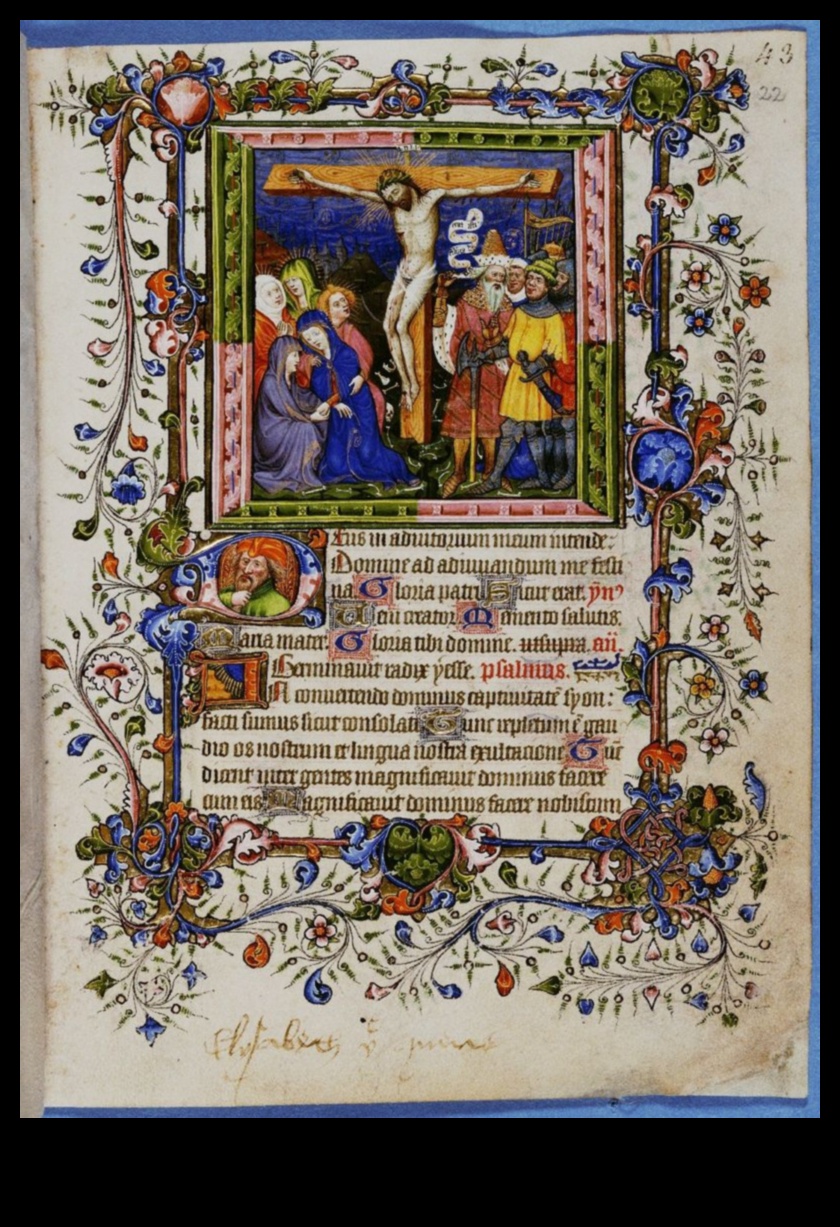 43
22
Deus in adiutorium meum intende:
Domine ad adiuuandum me festi
na. Gloria patri Sicut erat. ẏmꝰ
Ueni creator. Memento salutis.
Maria mater. Gloria tibi domine. ut supra. añ.
Germinauit radix ẏesse. psalmus.
IN conuertendo dominus captiuitatē sẏon:
facti sumus sicut consolati Tunc repletum ē gau
dio os nostrum et lingua nostra exultacione Tūc
dicent inter gentes magnificauit dominus facere
cum eis Magnificauit dominus facere nobiscum
Elysabeth